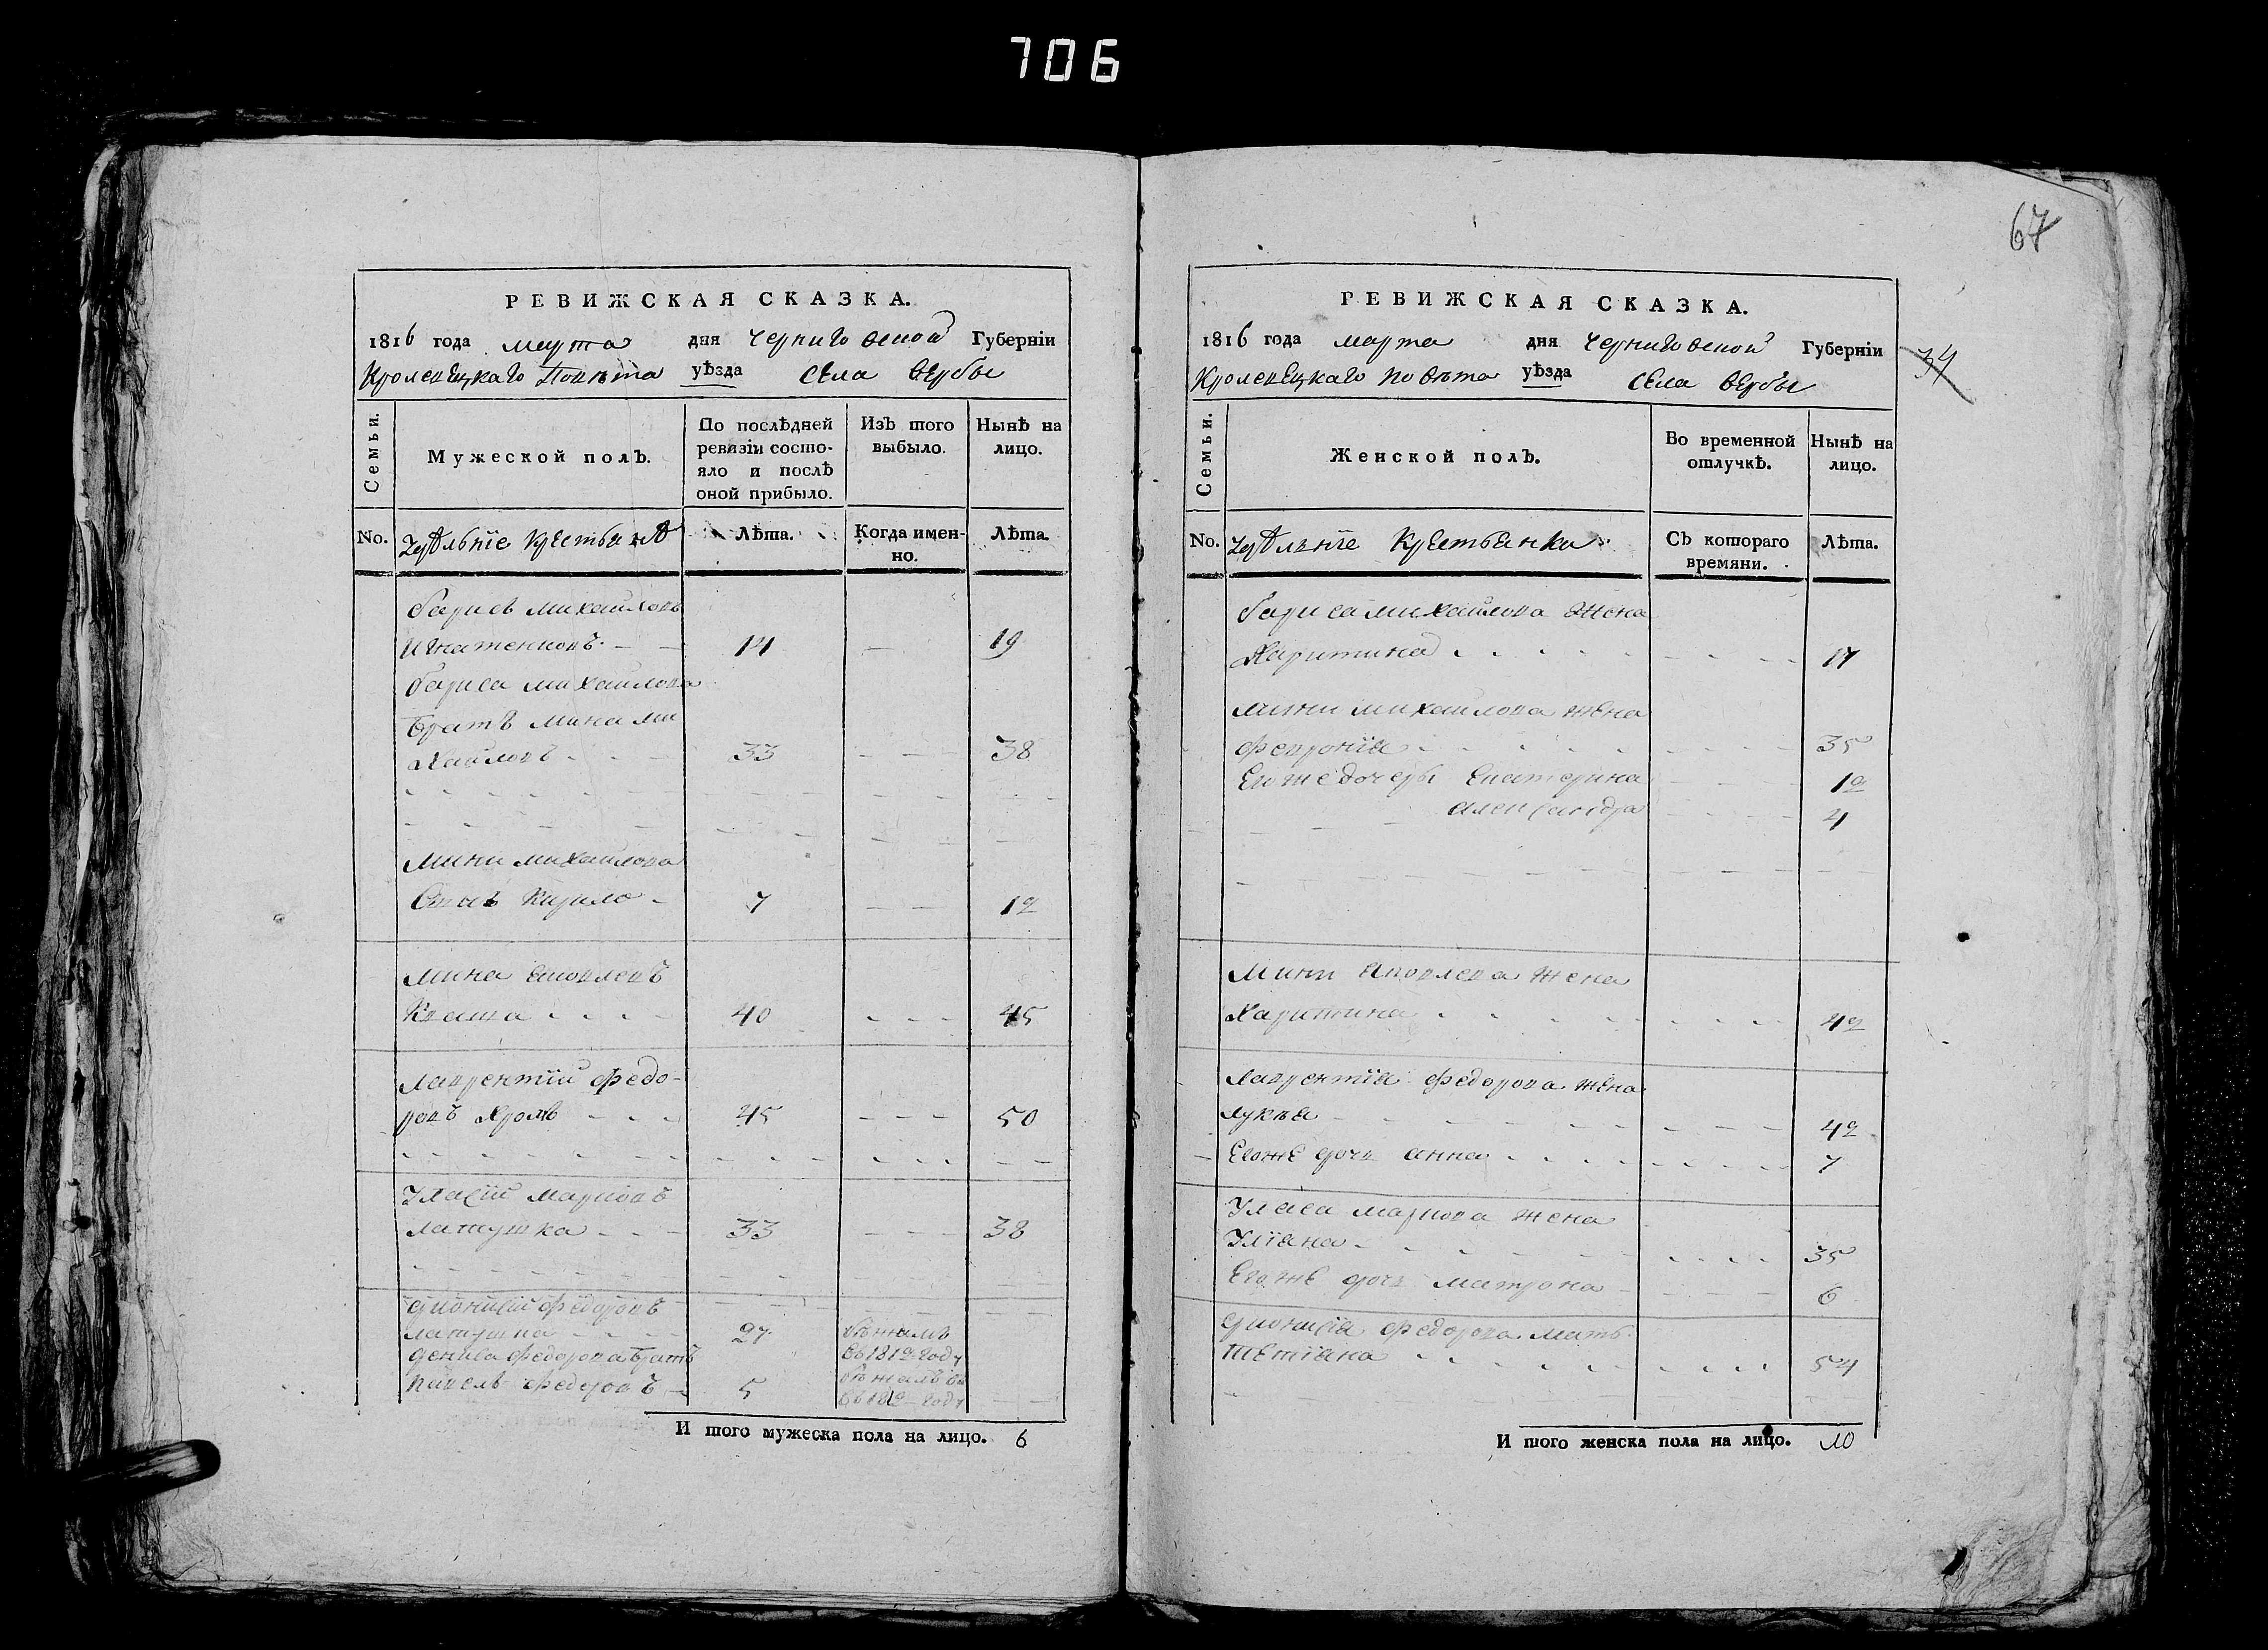 706
РЕВИЖСКАЯ СКАЗКА.
1816 года марта дня Черниговской Губерніи
Кролевецкаго Повѣта уѣзда села Вербы
Семьи.
Мужеской полъ.
По послѣдней ревизіи состояло и послѣ оной прибыло.
Изъ того выбыло.
Нынѣ на лицо.
No.
крестьянѣ
Лѣта.
Когда именно.
Лѣта.
Барисъ михаиловъ
Игнатенковъ 14 19
Бариса михаилова
Братъ мина ми
хаиловъ 33 38
мини михаилова
Сынъ Кирило 7 12
мина яковлевъ
Кваша 40 45
лаврентіи федо-
ровъ 45 50
Уласіи марковъ
латушка 33 38
дионисіи федоровъ
латушка 27 бѣжалъ
въ 1812 году
дениса федорова братъ
павелъ федоровъ 5 бѣжалъ
году
И того мужеска пола на лицо. 6
67
РЕВИЖСКАЯ СКАЗКА.
1816 года марта дня Черниговской Губерніи
34
Кролевецкаго повѣта уѣзда села вербы
Семьи.
Женской полъ.
Во временной отлучкѣ.
Нынѣ на лицо.
No.
крестьянки
Съ котораго времяни.
Лѣта.
бариса михаилова жена
Харитина 17
мини михаилова жена
феврониа 35
Егоже дочеры Екатерина 12
александра 4
мини яковлева жена
Харитина 42
лаврентія федорова жена
лукѣя 42
Егоже дочь анна 7
Уласа маркова жена
Уліана 35
Егоже дочь матрона 6
дионисія федорова мать
тетіана 54
И того женска пола на лицо. 10